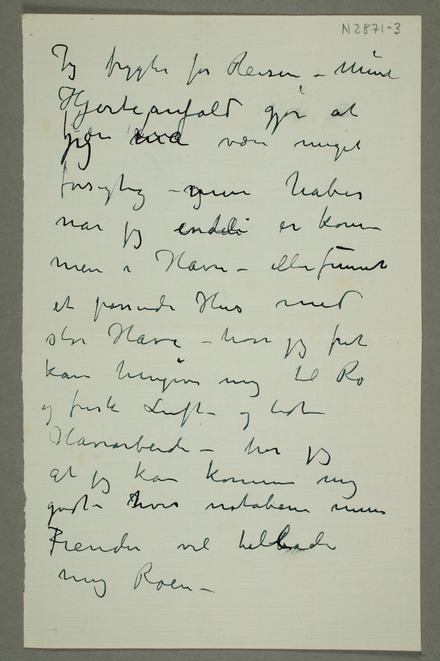 N 2871-3
Jeg frygter for Reisen – Mine
Hjerteanfald gjør at
jeg må være meget
forsigtig – men håber
når jeg endeli er kom
men i Havn – eller funnet
et passende Hus med
stor Have – hvor jeg frit
kan hengive mig til Ro
og frisk Luft – og lidt
Havearbeide – har jeg
at jeg kan komme mig
godt – hvis notabene mine
Fiender vil tillade
mig Roen –